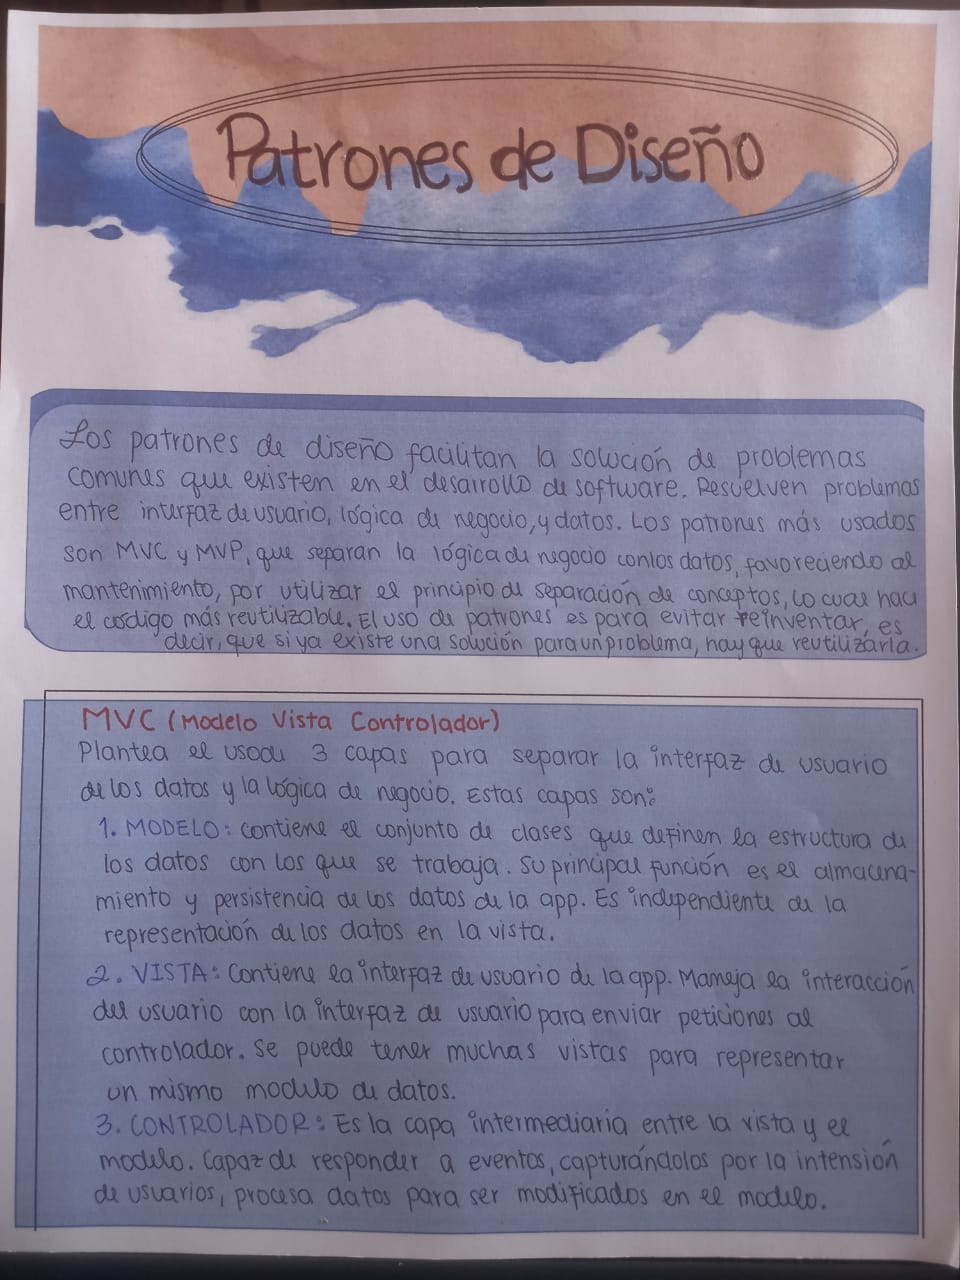 Patrones de Diseño
Los patrones de diseño facilitan la solución de problemas
comunes que existen en el desarrollo de software. Resuelven problemas
entre interfaz de usuario, lógica de negocio, y datos. Los patrones más usados
son MVC y MVP, que separan la lógica de negocio con los datos, favoreciendo al
mantenimiento, por utilizar el principio de separación de conceptos, lo cual hace
el código más reutilizable. El uso de patrones es para evitar reinventar, es
decir, que si ya existe una solución para un problema, hay que reutilizarla.
MVC (Modelo Vista Controlador)
Plantea el uso de 3 capas para separar la interfaz de usuario
de los datos y la lógica de negocio. Estas capas son:
1. MODELO: Contiene el conjunto de clases que definen la estructura de
los datos con los que se trabaja. Su principal función es el almacena-
miento y persistencia de los datos de la app. Es independiente de la
representación de los datos en la vista.
2. VISTA: Contiene la interfaz de usuario de la app. Maneja la interacción
del usuario con la interfaz de usuario para enviar peticiones al
controlador. Se puede tener muchas vistas para representar
un mismo modulo de datos.
3. CONTROLADOR: Es la capa intermediaria entre la vista y el
modelo. Capaz de responder a eventos, capturándolos por la intensión
de usuarios, procesa datos para ser modificados en el modelo.